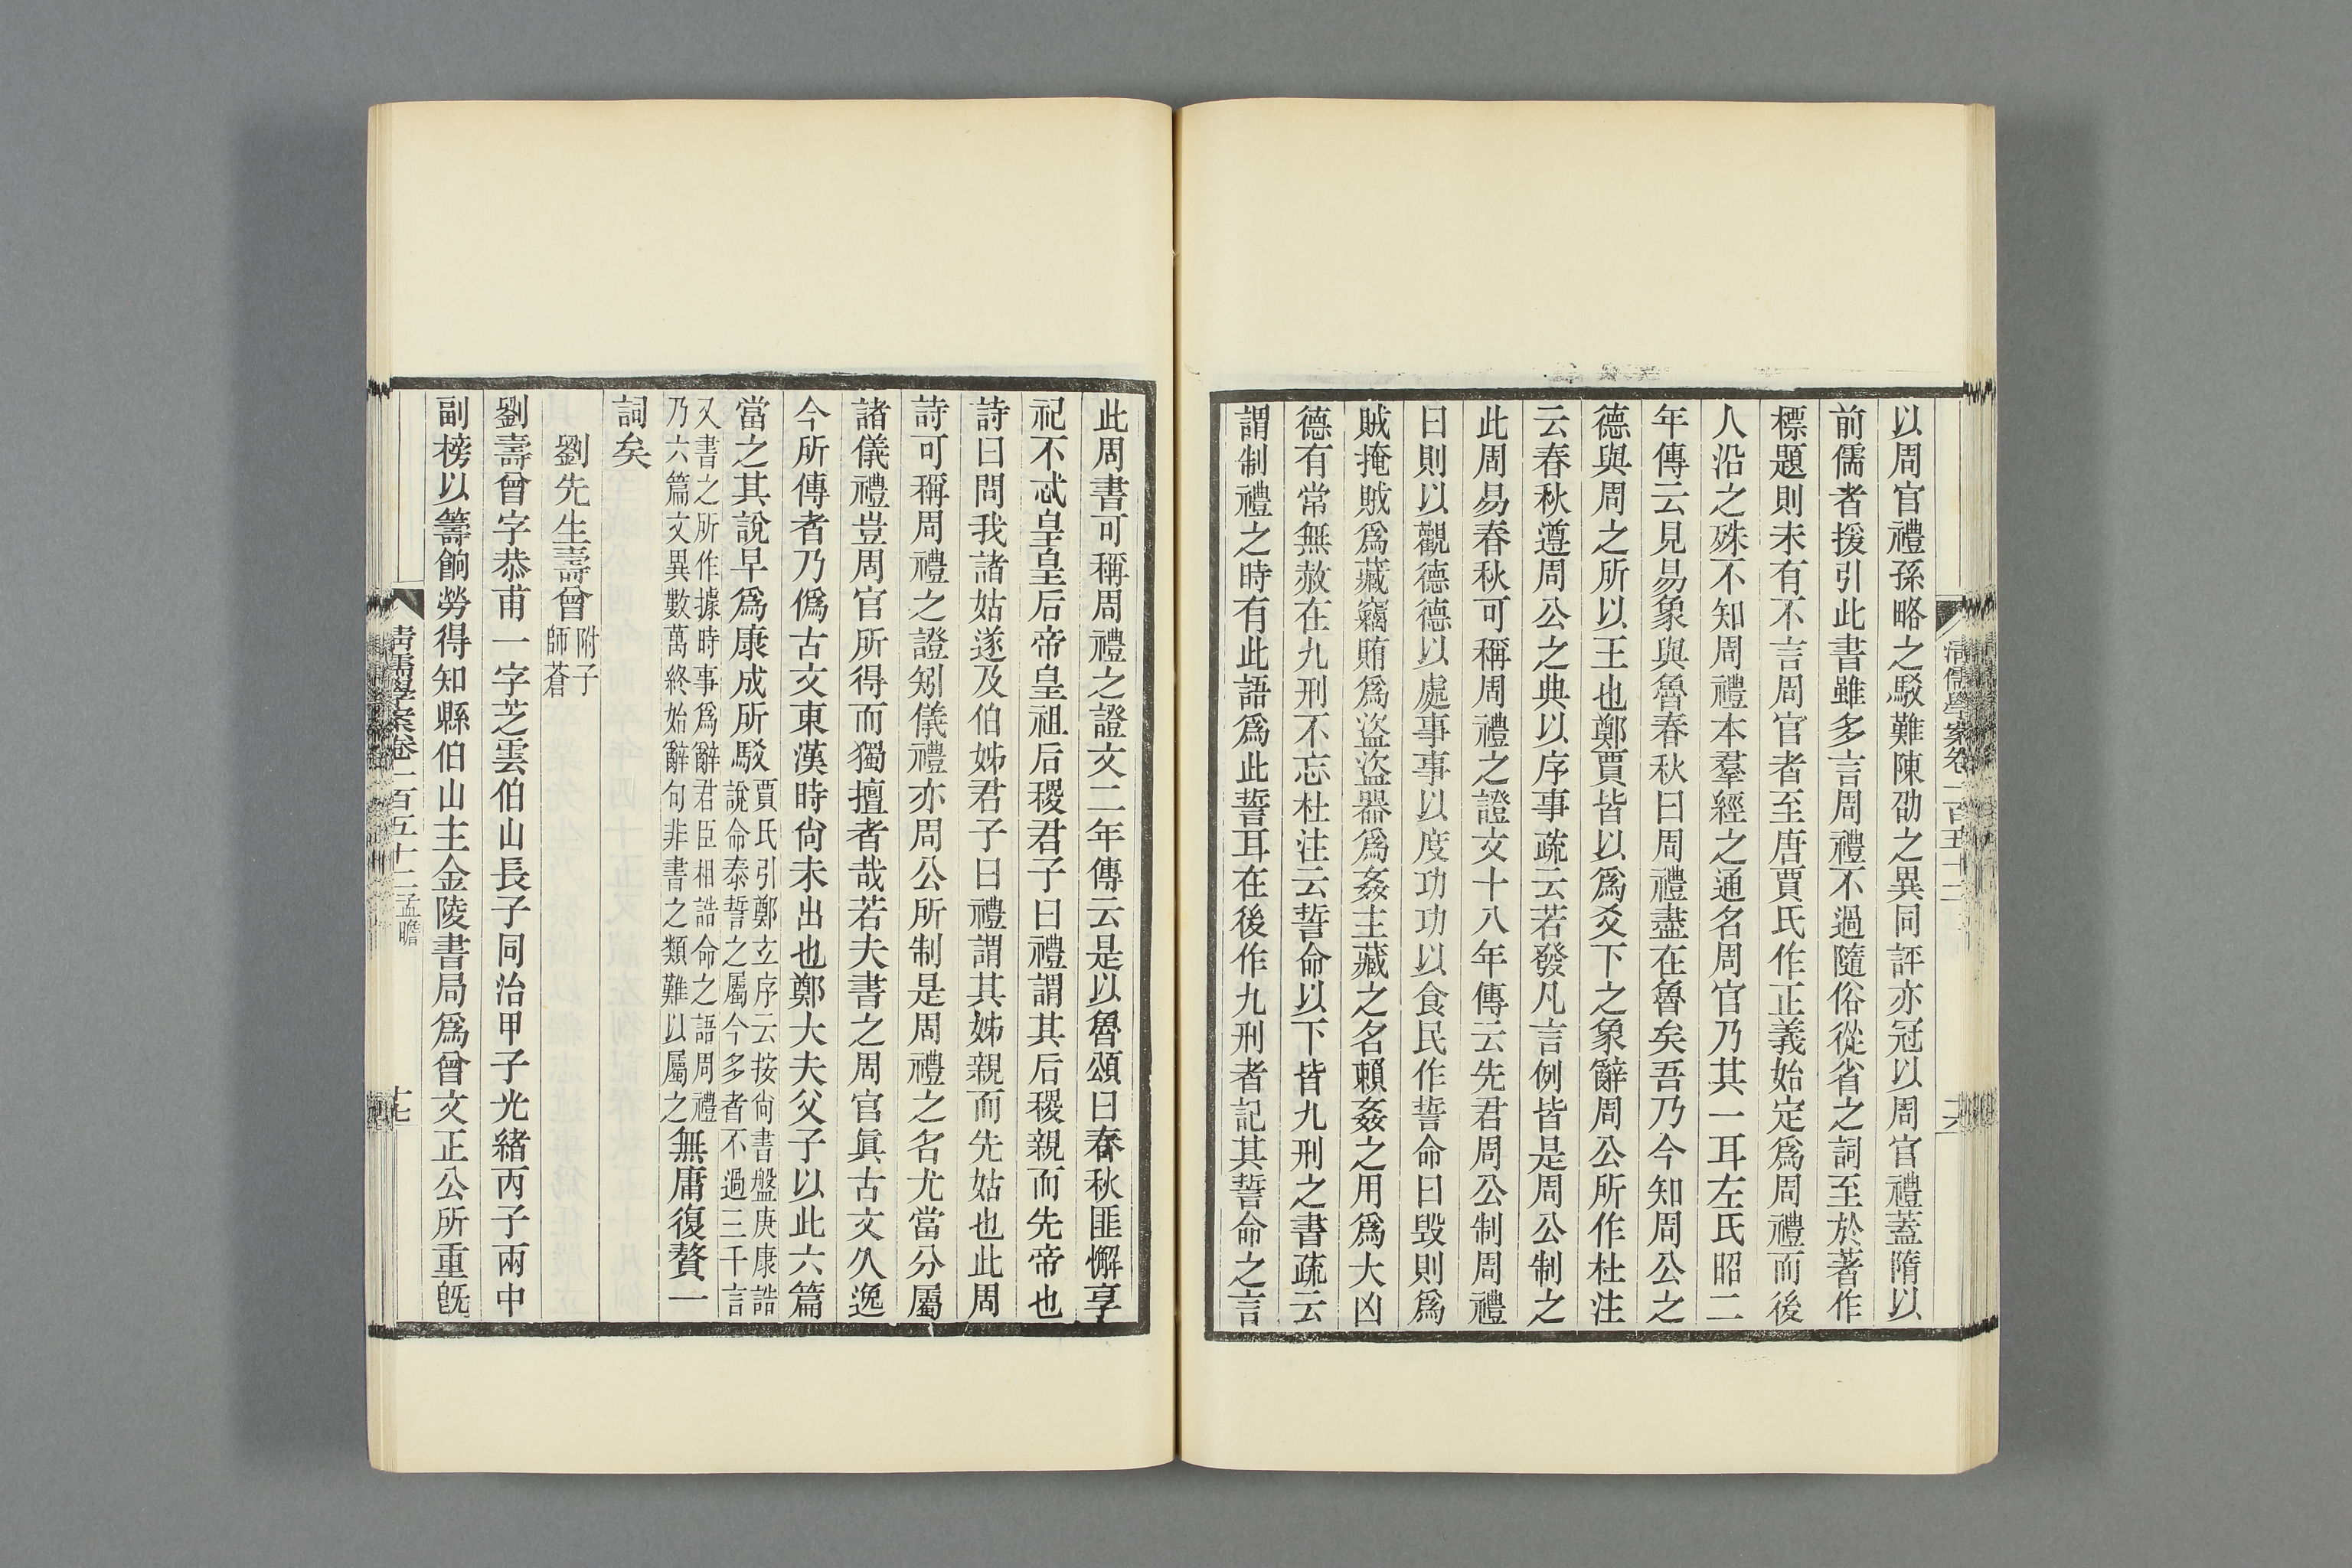 清儒學案卷一百五十二
十六
以周官禮孫略之駁難陳劭之異同評亦冠以周官禮蓋隋以
前儒者援引此書雖多言周禮不過隨俗從省之詞至於著作
標題則未有不言周官者至唐賈氏作正義始定爲周禮而後
人沿之殊不知周禮本羣經之通名周官乃其一耳左氏昭二
年傳云見易象與魯春秋曰周禮盡在魯矣吾乃今知周公之
德與周之所以王也鄭賈皆以爲爻下之象辭周公所作杜注
云春秋遵周公之典以序事疏云若發凡言例皆是周公制之
此周易春秋可稱周禮之證文十八年傳云先君周公制周禮
曰則以觀德德以處事事以度功功以食民作誓命曰毀則爲
賊掩賊爲藏竊賄爲盜盜器爲姦主藏之名賴姦之用爲大凶
德有常無赦在九刑不忘杜注云誓命以下皆九刑之書疏云
謂制禮之時有此語爲此誓耳在後作九刑者記其誓命之言
此周書可稱周禮之證文二年傳云是以魯頌曰春秋匪懈享
祀不忒皇皇后帝皇祖后稷君子曰禮謂其后稷親而先帝也
詩曰問我諸姑遂及伯姊君子曰禮謂其姊親而先姑也此周
詩可稱周禮之證矧儀禮亦周公所制是周禮之名尤當分屬
諸儀禮豈周官所得而獨擅者哉若夫書之周官眞古文久逸
今所傳者乃僞古文東漢時尙未出也鄭大夫父子以此六篇
當之其說早爲康成所駁賈氏引鄭玄序云按尙書盤庚康誥
說命泰誓之屬今多者不過三千言
又書之所作據時事爲辭君臣相誥命之語周禮
乃六篇文異數萬終始辭句非書之類難以屬之無庸復贅一
詞矣
劉先生壽曾附子
師蒼
劉壽曾字恭甫一字芝雲伯山長子同治甲子光緖丙子兩中
副榜以籌餉勞得知縣伯山主金陵書局爲曾文正公所重旣
清儒學案卷一百五十二孟瞻
十七